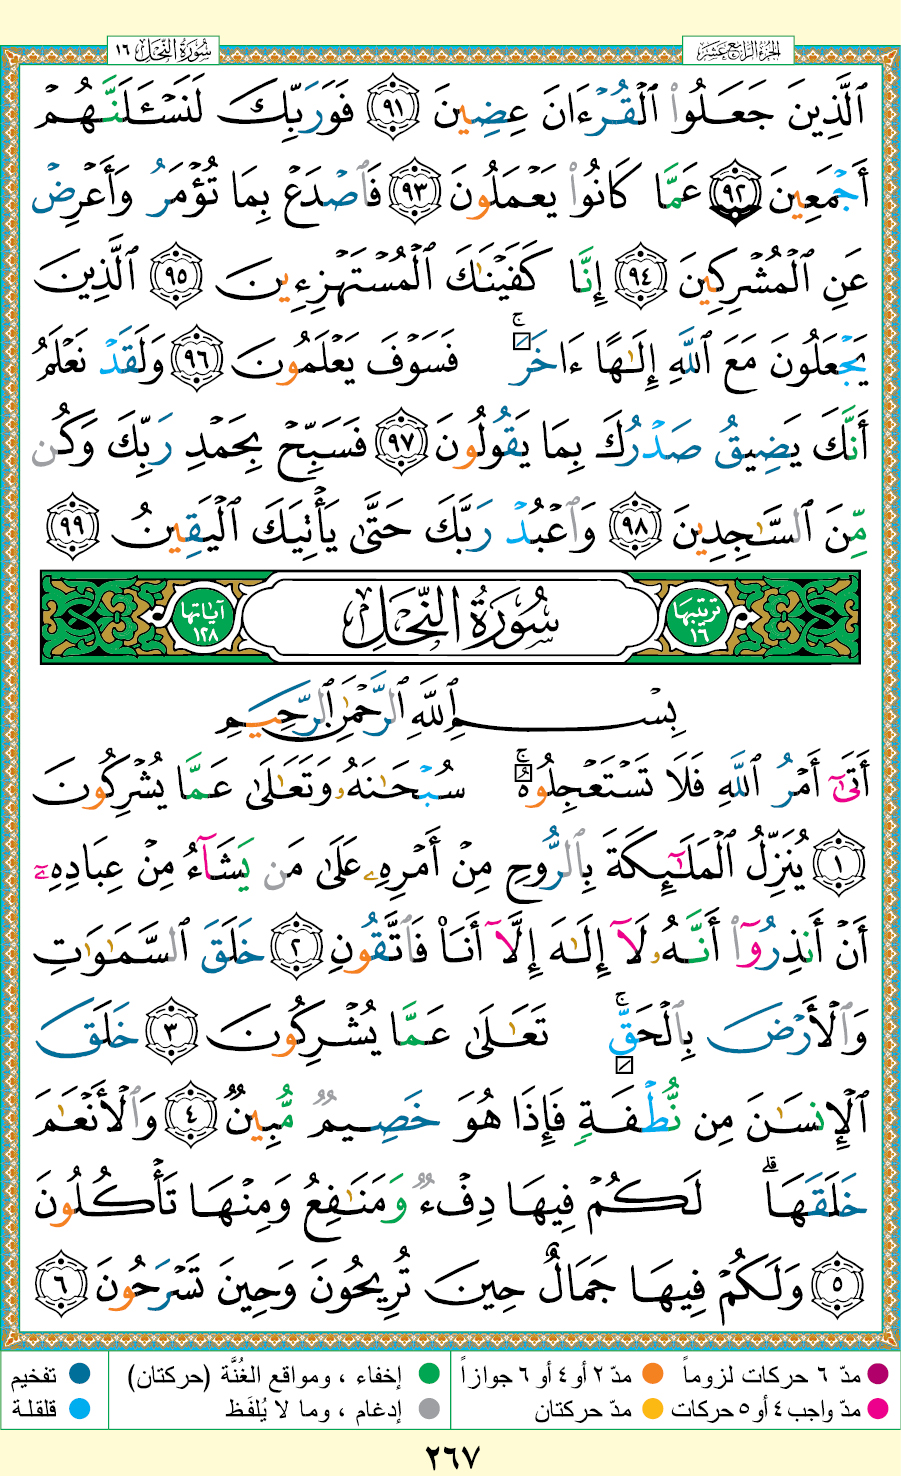 سُورَةُ النَّحْلِ ١٦
الجُزْءُ الرَّابِعَ عَشَرَ
ٱلَّذِينَ جَعَلُوا۟ ٱلْقُرْءَانَ عِضِينَ ٩١ فَوَرَبِّكَ لَنَسْـَٔلَنَّهُمْ
أَجْمَعِينَ ٩٢ عَمَّا كَانُوا۟ يَعْمَلُونَ ٩٣ فَٱصْدَعْ بِمَا تُؤْمَرُ وَأَعْرِضْ
عَنِ ٱلْمُشْرِكِينَ ٩٤ إِنَّا كَفَيْنَـٰكَ ٱلْمُسْتَهْزِءِينَ ٩٥ ٱلَّذِينَ
يَجْعَلُونَ مَعَ ٱللَّهِ إِلَـٰهًا ءَاخَرَ ۚ فَسَوْفَ يَعْلَمُونَ ٩٦ وَلَقَدْ نَعْلَمُ
أَنَّكَ يَضِيقُ صَدْرُكَ بِمَا يَقُولُونَ ٩٧ فَسَبِّحْ بِحَمْدِ رَبِّكَ وَكُن
مِّنَ ٱلسَّـٰجِدِينَ ٩٨ وَٱعْبُدْ رَبَّكَ حَتَّىٰ يَأْتِيَكَ ٱلْيَقِينُ ٩٩
ترتيبها ١٦ سُورَةُ النَّحْلِ آياتها ١٢٨
بِسْمِ ٱللَّهِ ٱلرَّحْمَـٰنِ ٱلرَّحِيمِ
أَتَىٰٓ أَمْرُ ٱللَّهِ فَلَا تَسْتَعْجِلُوهُ ۚ سُبْحَـٰنَهُۥ وَتَعَـٰلَىٰ عَمَّا يُشْرِكُونَ
١ يُنَزِّلُ ٱلْمَلَـٰٓئِكَةَ بِٱلرُّوحِ مِنْ أَمْرِهِۦ عَلَىٰ مَن يَشَآءُ مِنْ عِبَادِهِۦٓ
أَنْ أَنذِرُوٓا۟ أَنَّهُۥ لَآ إِلَـٰهَ إِلَّآ أَنَا۠ فَٱتَّقُونِ ٢ خَلَقَ ٱلسَّمَـٰوَٰتِ
وَٱلْأَرْضَ بِٱلْحَقِّ ۚ تَعَـٰلَىٰ عَمَّا يُشْرِكُونَ ٣ خَلَقَ
ٱلْإِنسَـٰنَ مِن نُّطْفَةٍ فَإِذَا هُوَ خَصِيمٌ مُّبِينٌ ٤ وَٱلْأَنْعَـٰمَ
خَلَقَهَا ۗ لَكُمْ فِيهَا دِفْءٌ وَمَنَـٰفِعُ وَمِنْهَا تَأْكُلُونَ
٥ وَلَكُمْ فِيهَا جَمَالٌ حِينَ تُرِيحُونَ وَحِينَ تَسْرَحُونَ ٦
مدّ ٦ حركات لزوماً مدّ ٢ أو ٤ أو ٦ جوازاً إخفاء ، ومواقع الغُنَّة (حركتان) تفخيم
مدّ واجب ٤ أو ٥ حركات مدّ حركتان إدغام ، وما لا يُلفَظ قلقلة
٢٦٧